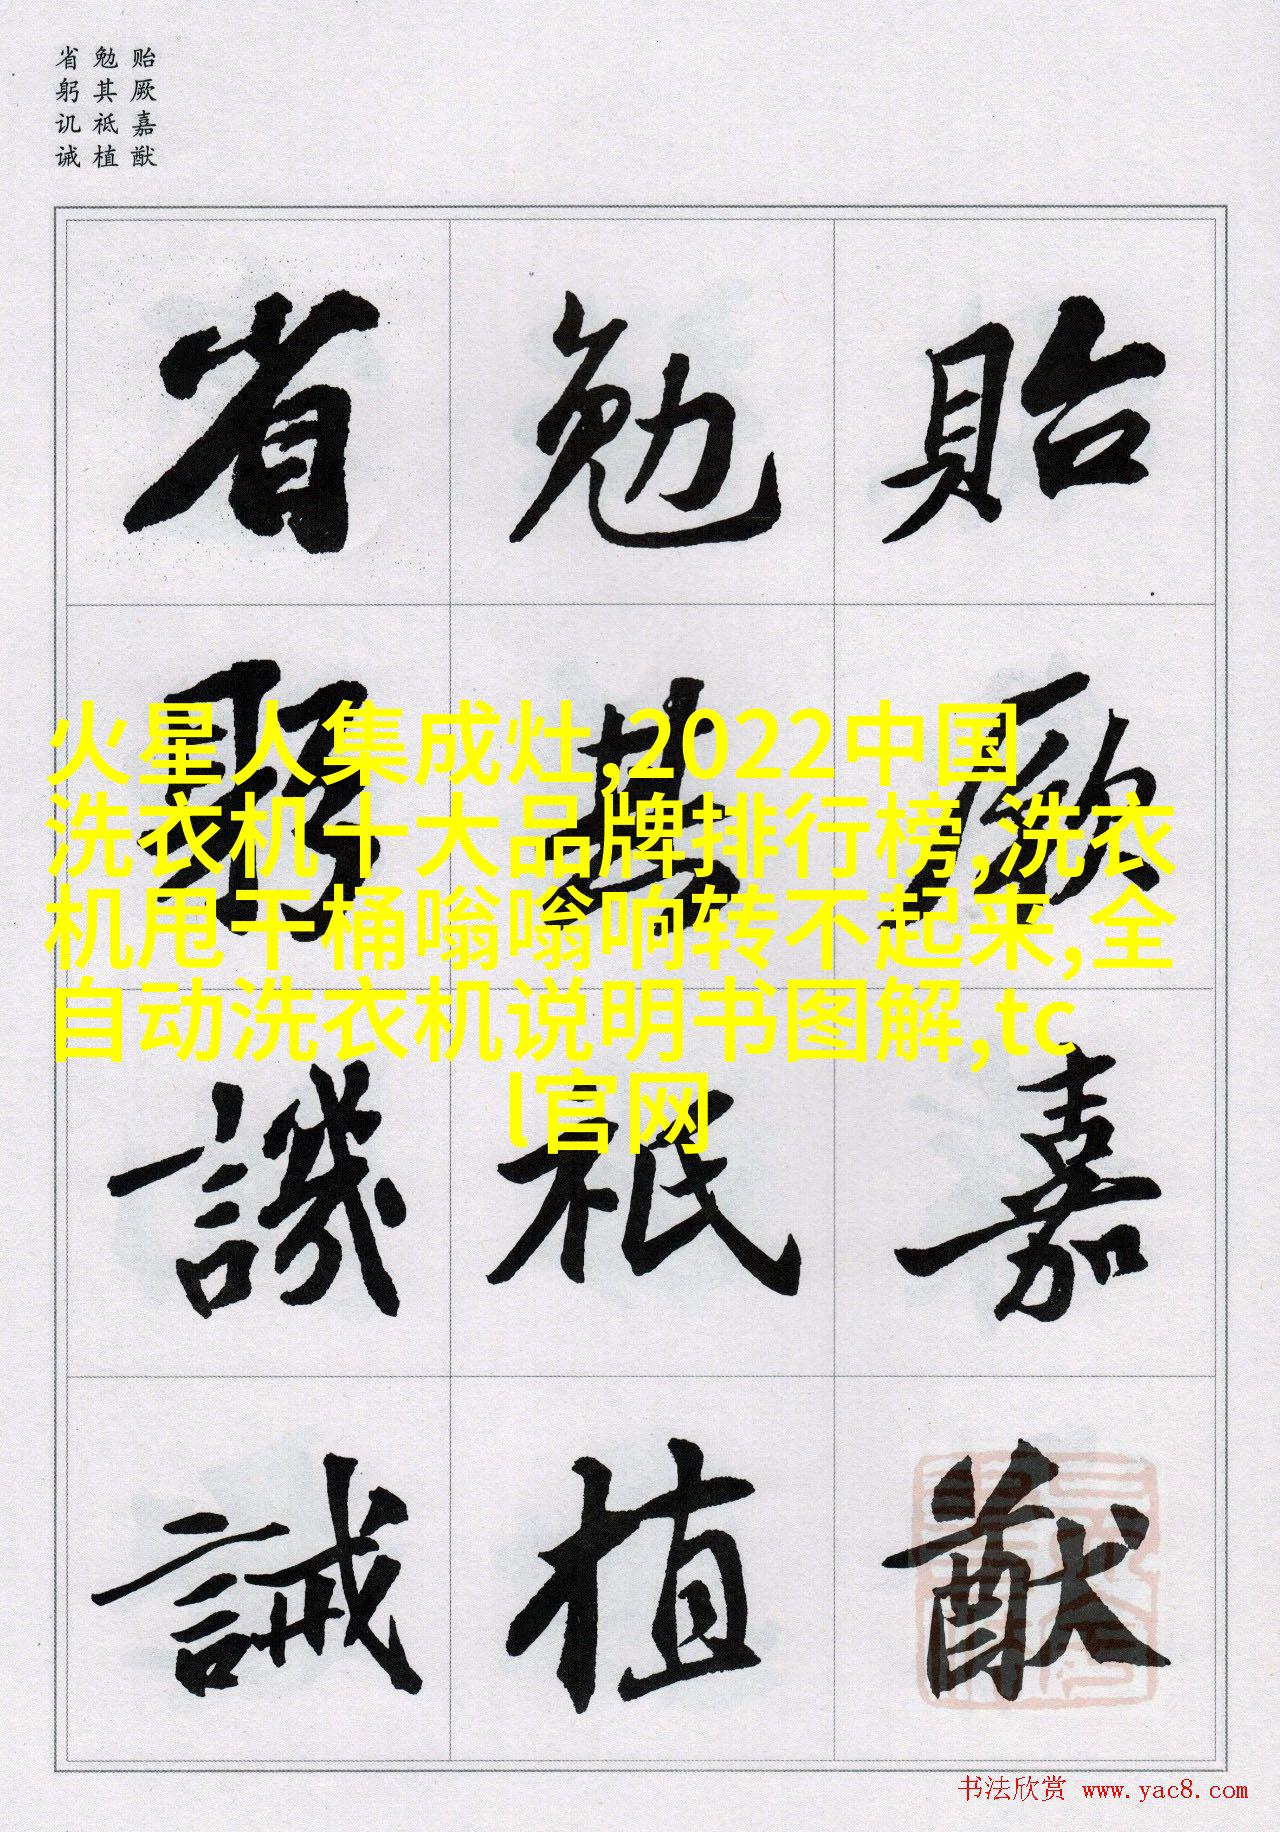 贻厥嘉猷
勉其祗植
省躬讥诫
貽厥嘉猷
勉其祗植
省躬譏誡
火星人集成灶,2022中国
洗衣机十大品牌排行榜,洗衣
机甩干桶嗡嗡响转不起来,全
自动洗衣机说明书图解,tc
l官网
书法欣赏 www.yac8.com